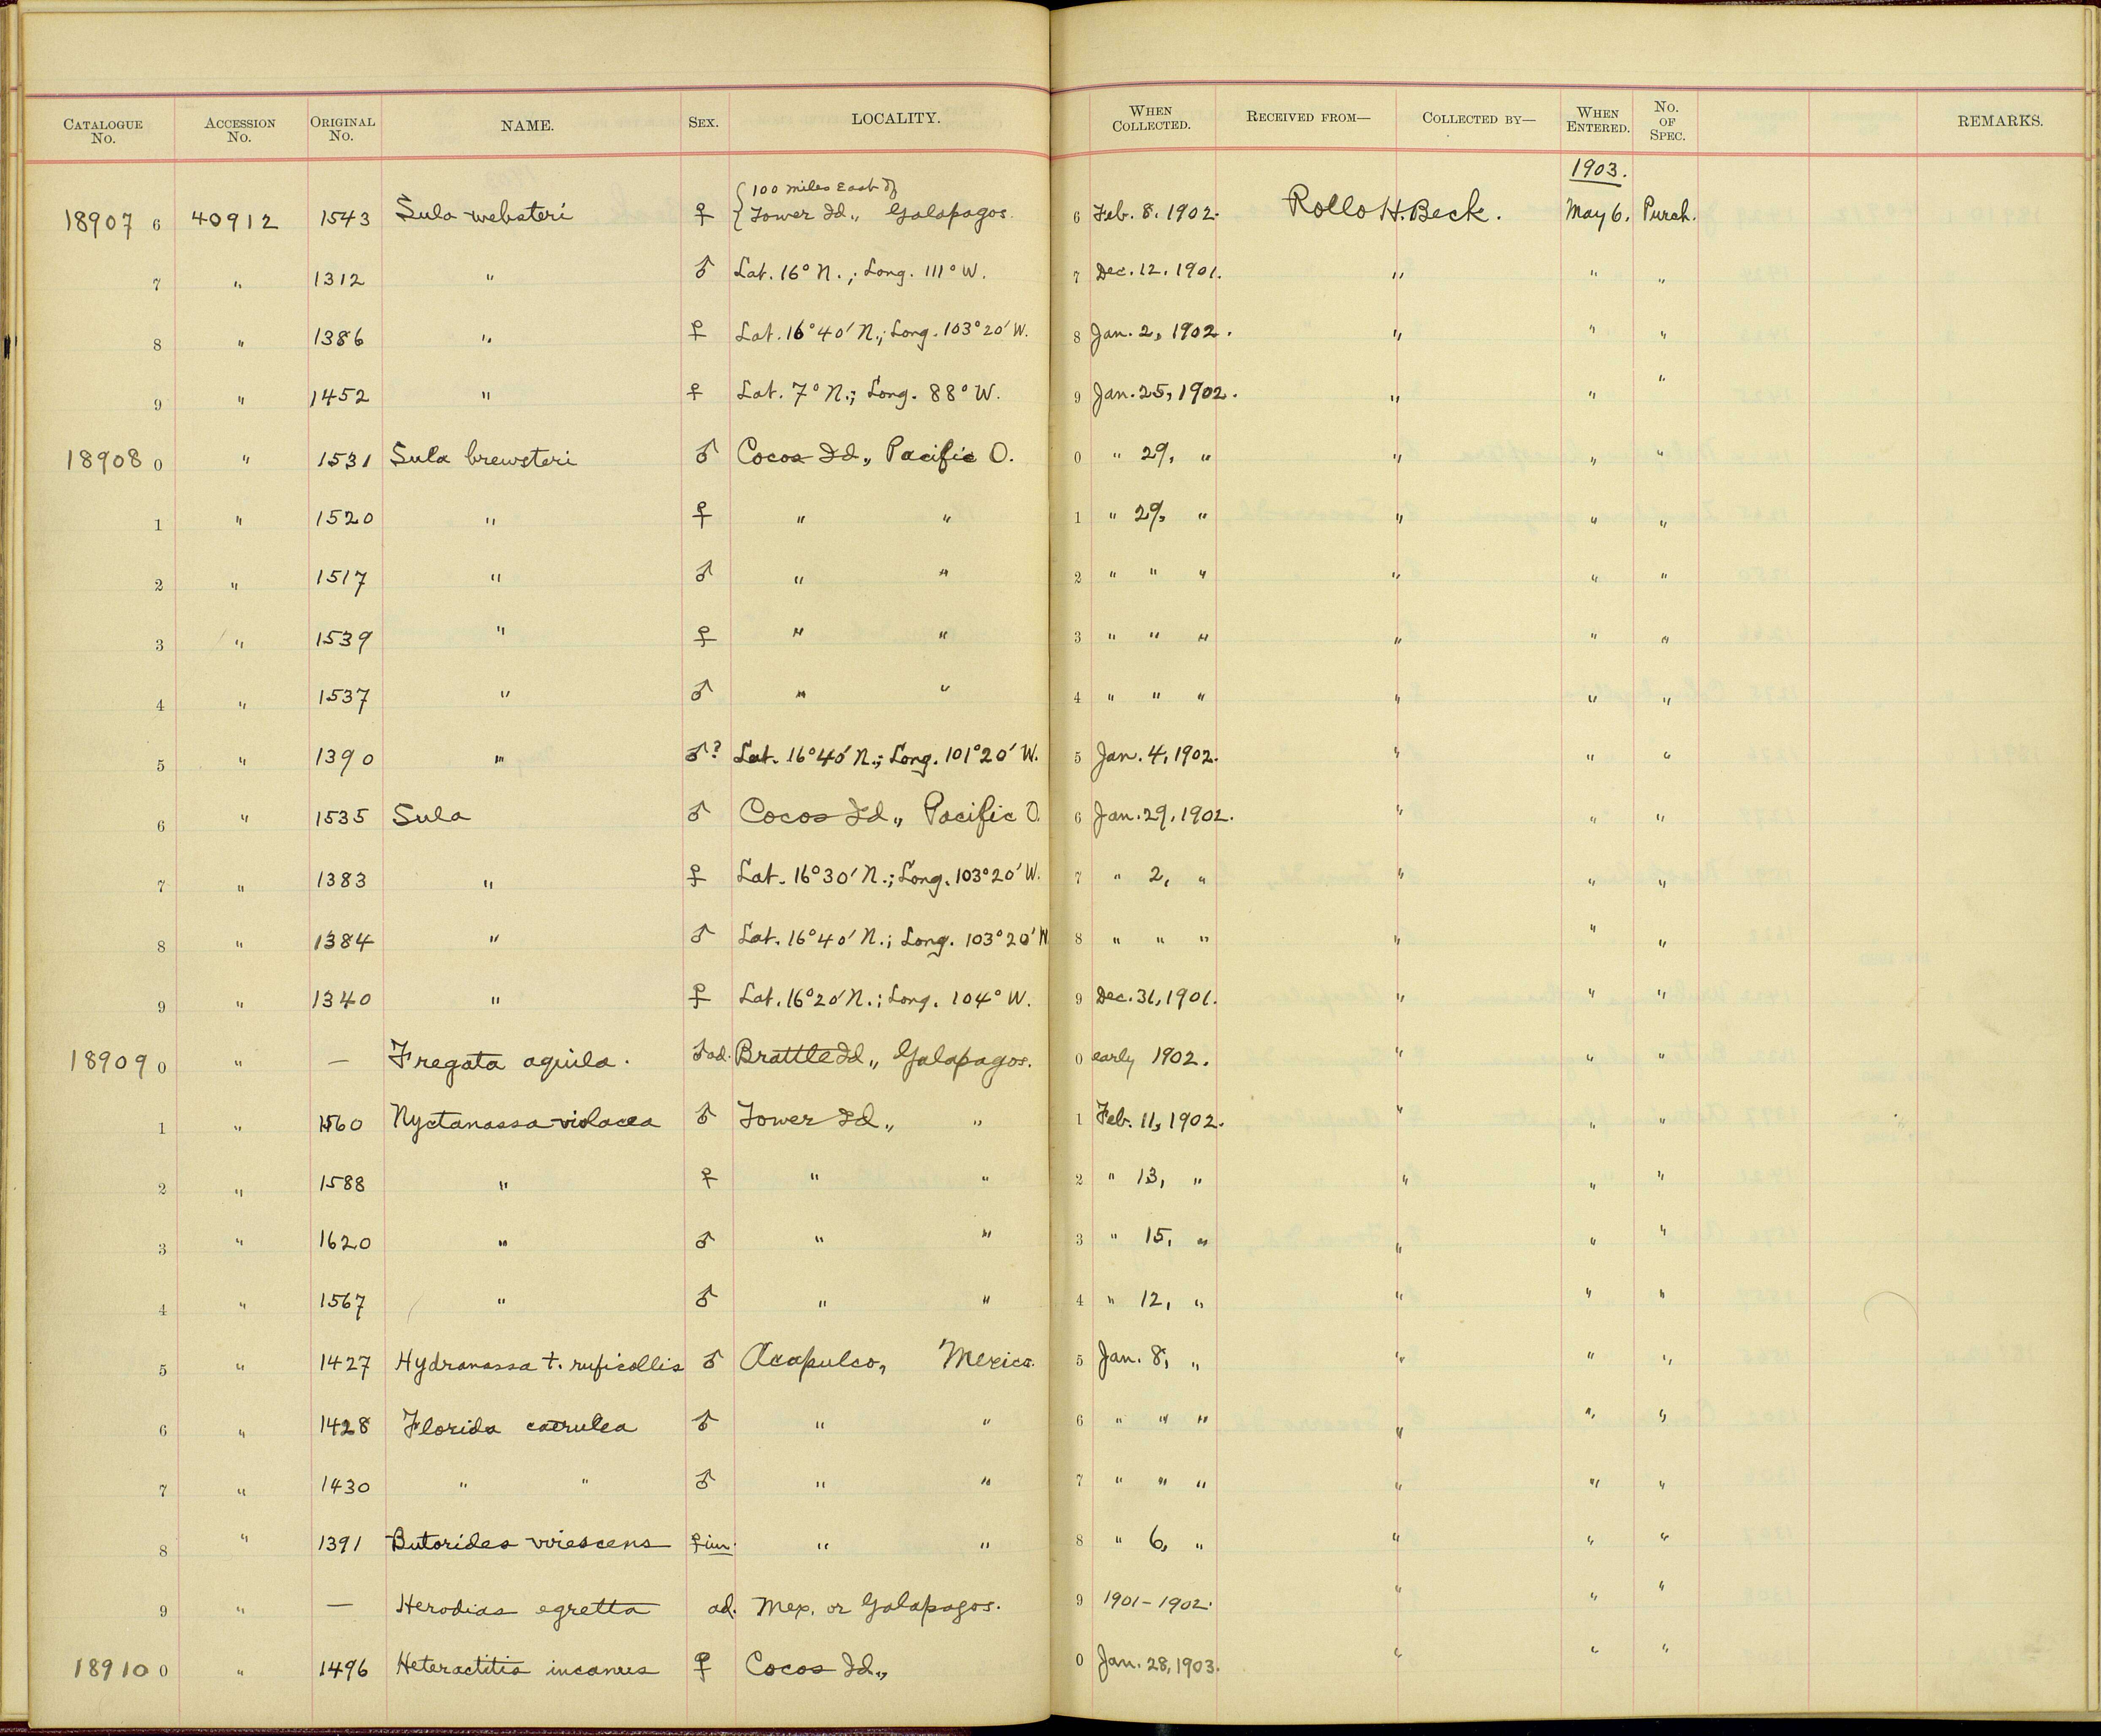 CATALOGUE No. ACCESSION No. ORIGINAL No. NAME. SEX. LOCALITY. WHEN COLLECTED. RECEIVED FROM— COLLECTED BY— WHEN ENTERED. No. OF SPEC. REMARKS.
1903.
{100 miles East of
18907 6 40912 1543 Sula websteri ♀ Tower Id., Galapagos. 6 Feb. 8, 1902. Rollo H. Beck. May 6. Purch.
7 " 1312 " ♂ Lat. 16° N.; Long. 111° W. 7 Dec. 12, 1901. " " "
8 " 1386 " ♀ Lat. 16°40' N.; Long. 103°20' W. 8 Jan. 2, 1902. " " "
9 " 1452 " ♀ Lat. 7° N.; Long. 88° W. 9 Jan. 25, 1902. " " "
18908 0 " 1531 Sula brewsteri ♂ Cocos Id., Pacific O. 0 " 29, " " " "
1 " 1520 " ♀ " " 1 " 29, " " " "
2 " 1517 " ♂ " " 2 " " " " " "
3 " 1539 " ♀ " " 3 " " " " " "
4 " 1537 " ♂ " " 4 " " " " " "
5 " 1390 " ♂? Lat. 16°40' N.; Long. 101°20' W. 5 Jan. 4, 1902. " " "
6 " 1535 Sula ♂ Cocos Id., Pacific O. 6 Jan. 29, 1902. " " "
7 " 1383 " ♀ Lat. 16°30' N.; Long. 103°20' W. 7 " 2, " " " "
8 " 1384 " ♂ Lat. 16°40' N.; Long. 103°20' W 8 " " " " " "
9 " 1340 " ♀ Lat. 16°20' N.; Long. 104° W. 9 Dec. 31, 1901. " " "
18909 0 " — Fregata aquila. ♂ad. Brattle Id., Galapagos. 0 early 1902. " " "
1 " 1560 Nyctanassa violacea ♂ Tower Id., " 1 Feb. 11, 1902. " " "
2 " 1588 " ♀ " " 2 " 13, " " " "
3 " 1620 " ♂ " " 3 " 15, " " " "
4 " 1567 " ♂ " " 4 " 12, " " " "
5 " 1427 Hydranassa t. ruficollis ♂ Acapulco, Mexico. 5 Jan. 8, " " " "
6 " 1428 Florida caerulea ♂ " " 6 " " " " " "
7 " 1430 " " ♂ " " 7 " " " " " "
8 " 1391 Butorides virescens ♀im. " " 8 " 6, " " " "
9 " — Herodias egretta ad. Mex. or Galapagos. 9 1901-1902. " " "
18910 0 " 1496 Heteractitis incanus ♀ Cocos Id., 0 Jan. 28, 1903. " " "